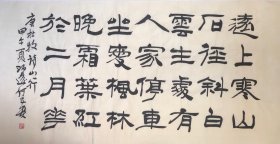 遠上寒山
石徑斜白
雲生處有
人家停車
坐愛楓林
晚霜葉紅
於二月花
唐杜牧詩山行
甲午夏